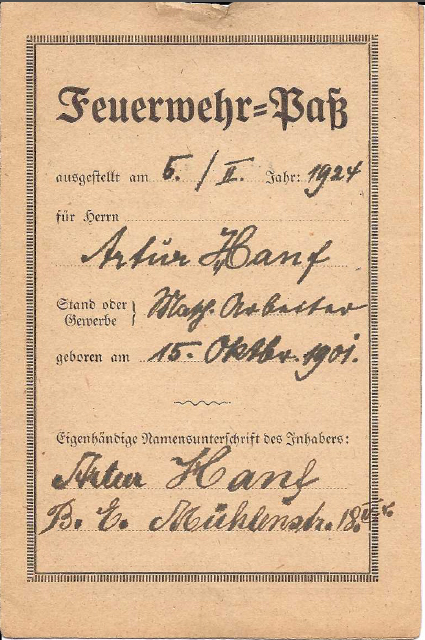 Feuerwehr=Paß
ausgestellt am 5. / II. Jahr: 1924
für Herrn
Artur Hanf
Stand oder Gewerbe } Masch. Arbeiter
geboren am 15. Oktbr. 1901.
Eigenhändige Namensunterschrift des Inhabers:
Artur Hanf
B. E. Mühlenstr. 18.